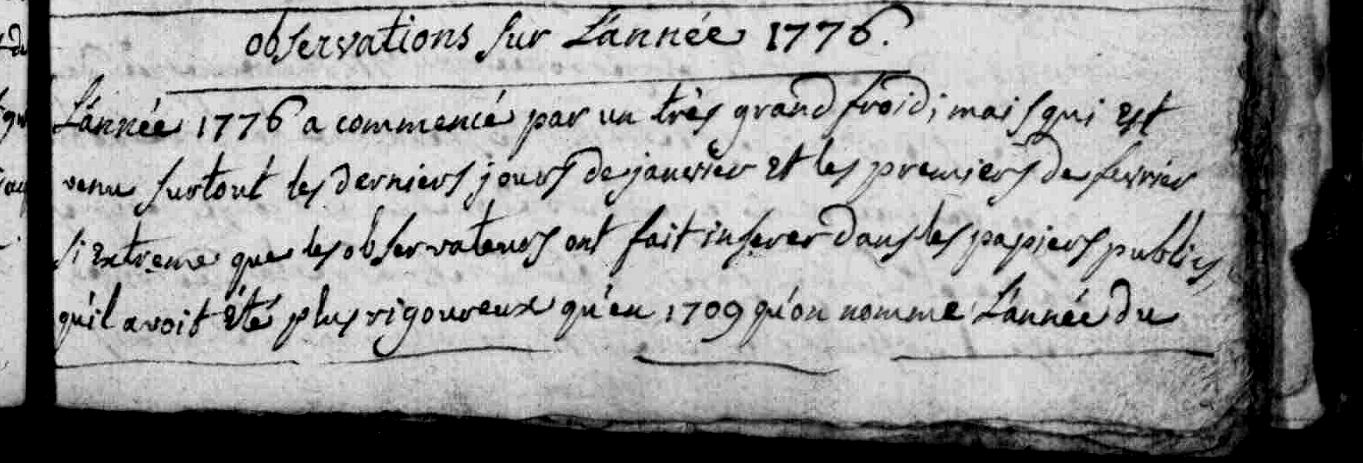 observations sur L'année 1776.
L'année 1776 a commencé par un très grand froid; mais qui est
venu surtout les derniers jours de janvier et les premiers de fevrier
si extreme que les observateurs ont fait inserer dans les papiers publics,
qu'il avoit été plus rigoureux qu'en 1709 qu'on nomme L'année du